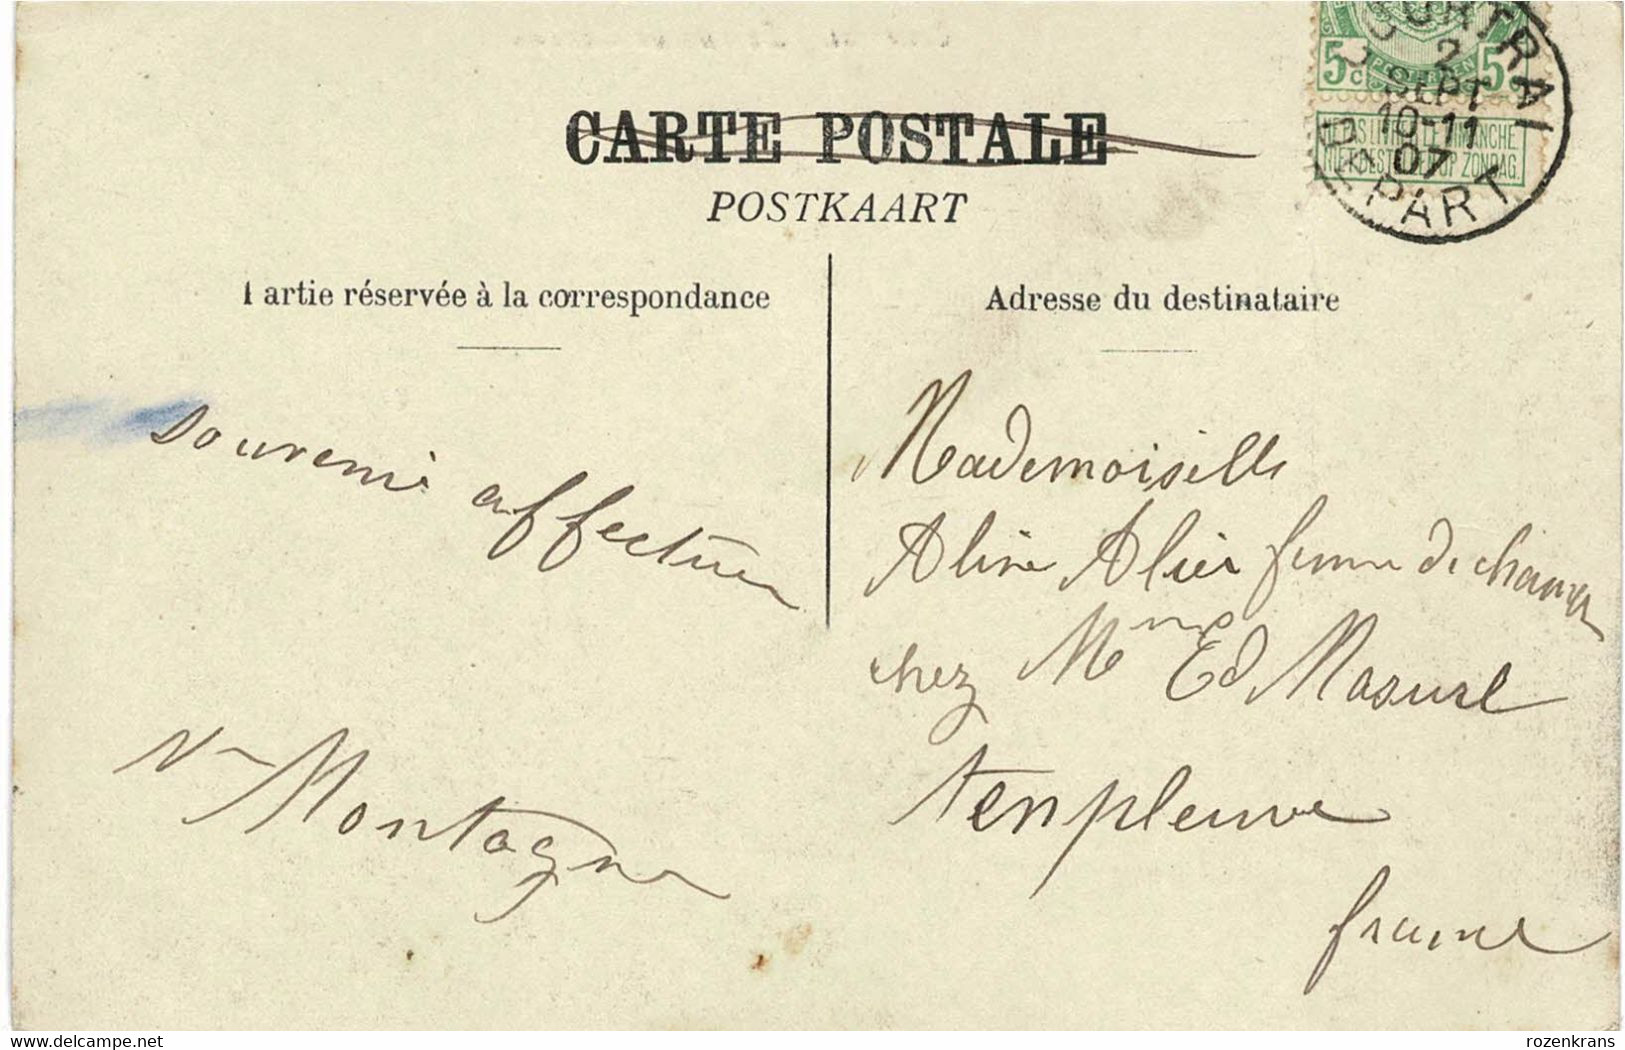 CARTE POSTALE
POSTKAART
5c 5c
COURTRAI
2
SEPT
10-11
07
DEPART
NE PAS LIVRER LE DIMANCHE
NIET BESTELLEN OP ZONDAG.
artie réservée à la correspondance
souvenir affectueux
Vve Montagne
Adresse du destinataire
Mademoiselle
Aline femme de chambre
chez Mme Ed Masurel
templeuve
france
delcampe.net
rozenkrans